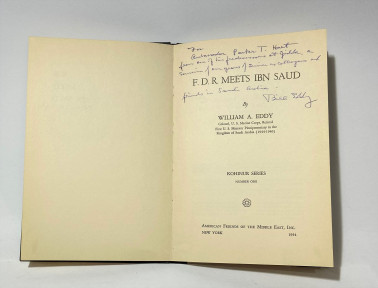 For
Ambassador Parker T. Hart
from one of his predecessors at Jidda, a
souvenir of our years of service as colleagues and
friends in Saudi Arabia.
Bill Eddy
F. D. R. MEETS IBN SAUD
By
WILLIAM A. EDDY
Colonel, U. S. Marine Corps, Retired
First U. S. Minister Plenipotentiary to the
Kingdom of Saudi Arabia (1944-1946)
KOHINUR SERIES
NUMBER ONE
AMERICAN FRIENDS OF THE MIDDLE EAST, INC.
NEW YORK 1954